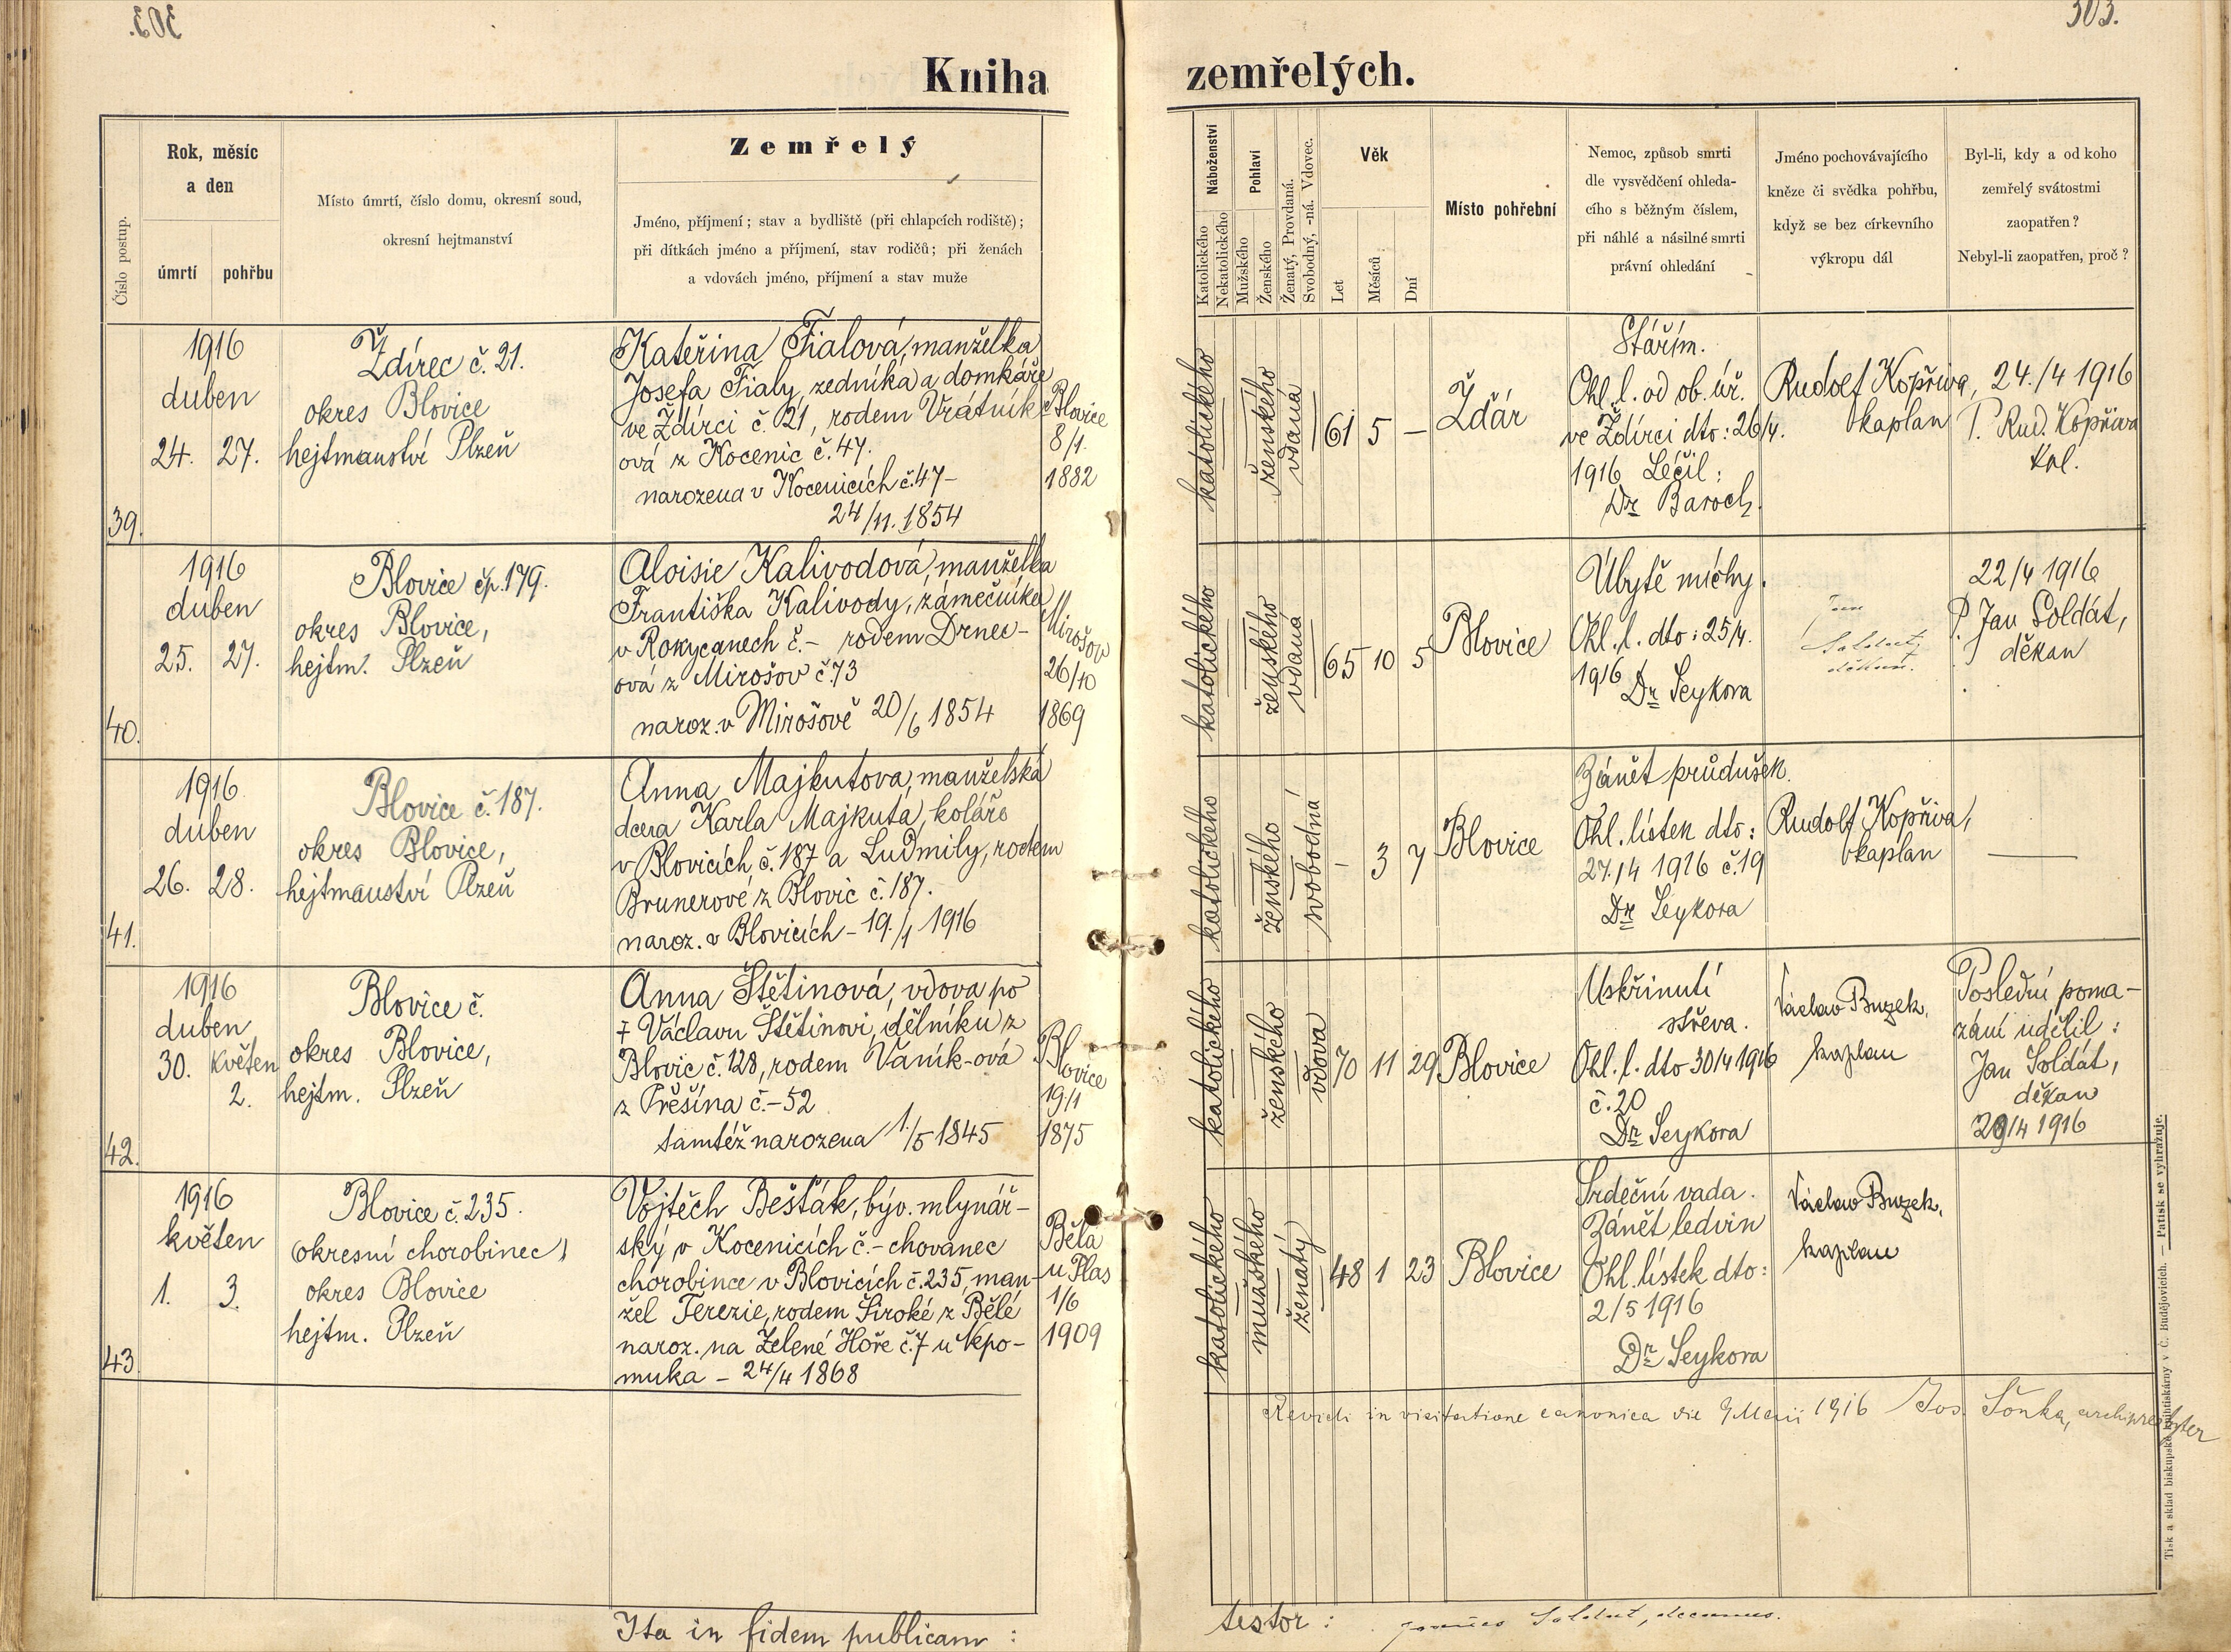 303.
303.
Kniha zemřelých.
Číslo postup.
Rok, měsíc
a den
úmrtí
pohřbu
Místo úmrtí, číslo domu, okresní soud,
okresní hejtmanství
Zemřelý
Jméno, příjmení; stav a bydliště (při chlapcích rodiště);
při dítkách jméno a příjmení, stav rodičů; při ženách
a vdovách jméno, příjmení a stav muže
Náboženství
Katolického
Nekatolického
Pohlaví
Mužského
Ženského
Ženatý, Provdaná.
Svobodný, -ná. Vdovec.
Věk
Let
Měsíců
Dní
Místo pohřební
Nemoc, způsob smrti
dle vysvědčení ohleda-
cího s běžným číslem,
při náhlé a násilné smrti
právní ohledání
Jméno pochovávajícího
kněze či svědka pohřbu,
když se bez církevního
výkropu dál
Byl-li, kdy a od koho
zemřelý svátostmi
zaopatřen?
Nebyl-li zaopatřen, proč?
39.
1916
duben
24. 27.
Ždírec č. 21.
okres Blovice
hejtmanství Plzeň
Kateřina Fialová, manželka
Josefa Fialy, zedníka a domkáře
ve Ždírci č. 21, rodem Vrátník-
ová z Kocenic č. 47.
narozena v Kocenicích č. 47 -
24/11. 1854
Blovice
8/1.
1882
katolického
ženského
vdaná
61 5 —
Žďár
Stářím.
Ohl. l. od ob. úř.
ve Ždírci dto: 26/4.
1916 Léčil:
Dr Baroch.
Rudolf Kopřiva,
kaplan
24./4 1916
P. Rud. Kopřiva
kpl.
40.
1916
duben
25. 27.
Blovice čp. 179.
okres Blovice,
hejtm. Plzeň
Aloisie Kalivodová, manželka
Františka Kalivody, zámečníka
v Rokycanech č. - rodem Drnec-
ová z Mirošov č. 73
naroz. v Mirošově 20/6 1854
Mirošov
26/10
1869
katolického
ženského
vdaná
65 10 5
Blovice
Úbytě míchy.
Ohl. l. dto: 25/4.
1916
Dr Seykora
Jan
Soldát,
děkan.
22/4 1916
P. Jan Soldát,
děkan
41.
1916
duben
26. 28.
Blovice č. 187.
okres Blovice,
hejtmanství Plzeň
Anna Majkutova, manželská
dcera Karla Majkuta, koláře
v Blovicích č. 187 a Ludmily, rodem
Brunerové z Blovic č. 187.
naroz. v Blovicích - 19./1 1916
katolického
ženského
svobodná
- 3 7
Blovice
Zánět průdušek.
Ohl. lístek dto:
27./4 1916 č. 19
Dr Seykora
Rudolf Kopřiva,
kaplan
—
42.
1916
duben
30. květen
2.
Blovice č.
okres Blovice,
hejtm. Plzeň
Anna Štětinová, vdova po
† Václavu Štětinovi, dělníku z
Blovic č. 128, rodem Vaník-ová
z Přešína č. - 52
tamtéž narozena 1./5 1845
Blovice
19/1
1875
katolického
ženského
vdova
70 11 29
Blovice
Uskřinutí
střeva.
Ohl. l. dto 30/4 1916
č. 20
Dr Seykora
Václav Buzek,
kaplan
Poslední poma-
zání udělil:
Jan Soldát,
děkan
29/4 1916
43.
1916
květen
1. 3.
Blovice č. 235.
(okresní chorobinec)
okres Blovice
hejtm. Plzeň
Vojtěch Bešťák, býv. mlynář-
ský v Kocenicích č. - chovanec
chorobince v Blovicích č. 235, man-
žel Terezie, rodem Široké z Bělé
naroz. na Zelené Hoře č. 7 u Nepo-
muka - 24/4 1868
Bělá
u Plas
1/6
1909
katolického
mužského
ženatý
48 1 23
Blovice
Srdeční vada.
Zánět ledvin
Ohl. lístek dto:
2/5 1916
Dr Seykora
Václav Buzek,
kaplan
Revidi in visitatione canonica die 9 Maii 1916 Jos. Šonka, archipresbyter
Ita in fidem publicam : testor : Joannes Soldát, decanus.
Tisk a sklad biskupské knihtiskárny v Č. Budějovicích. — Patisk se vyhražuje.